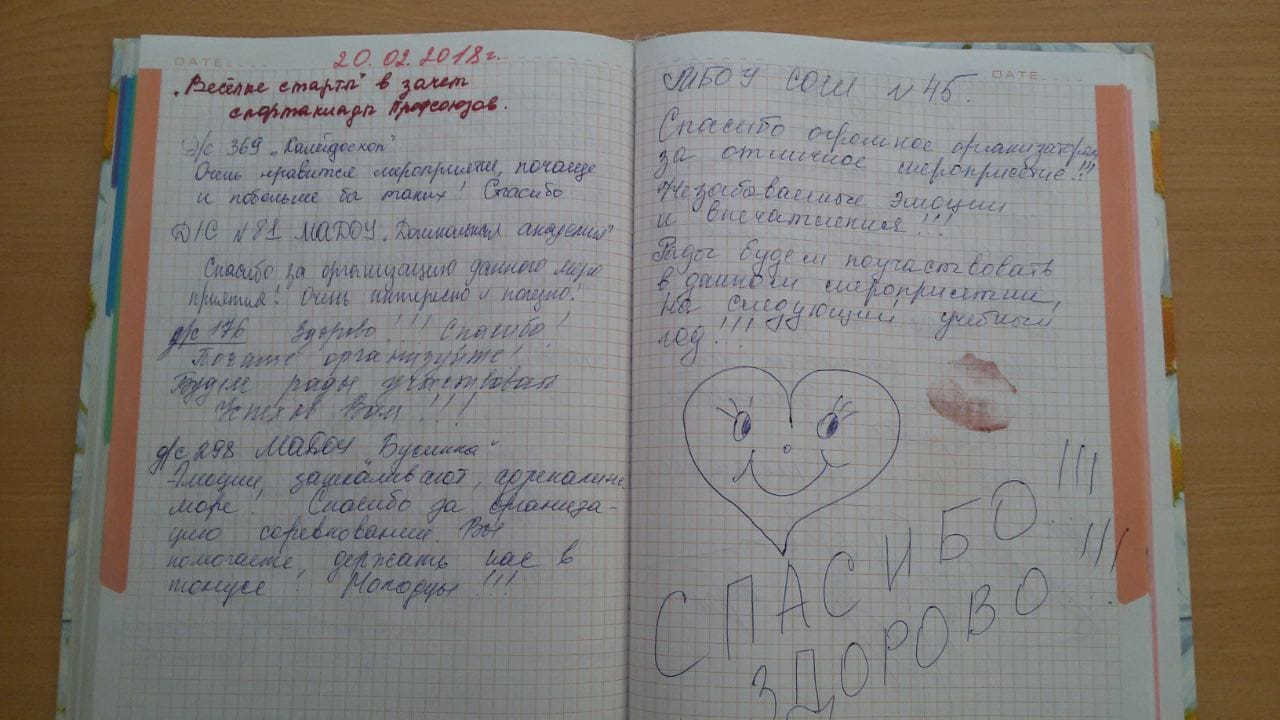 DATE
20.02.2018г.
„Весёлые старты" в зачет
спартакиады Профсоюзов.
Д/с 369 „Калейдоскоп"
Очень нравится мероприятие, почаще
и побольше бы таких! Спасибо
Д/С №81 МАДОУ „Дошкольная академия"
Спасибо за организацию данного меро
приятия! Очень интересно и полезно!
д/с 176 Здорово!!! Спасибо!
Почаще организуйте!
Будем рады участвовать
Успехов Вам!!!
д/с 298 МАДОУ „Бусинка"
Эмоции зашкаливают, адреналина
море! Спасибо за организа-
цию соревнований. Вы
помогаете, держать нас в
тонусе! Молодцы!!!
DATE
МБОУ СОШ №45.
Спасибо огромное организаторам
за отличное мероприятие!!!
Незабываемые эмоции
и впечатления!!!
Рады будем поучаствовать
в данном мероприятии,
на следующий учебный
год!!!
СПАСИБО!!!
ЗДОРОВО!!!